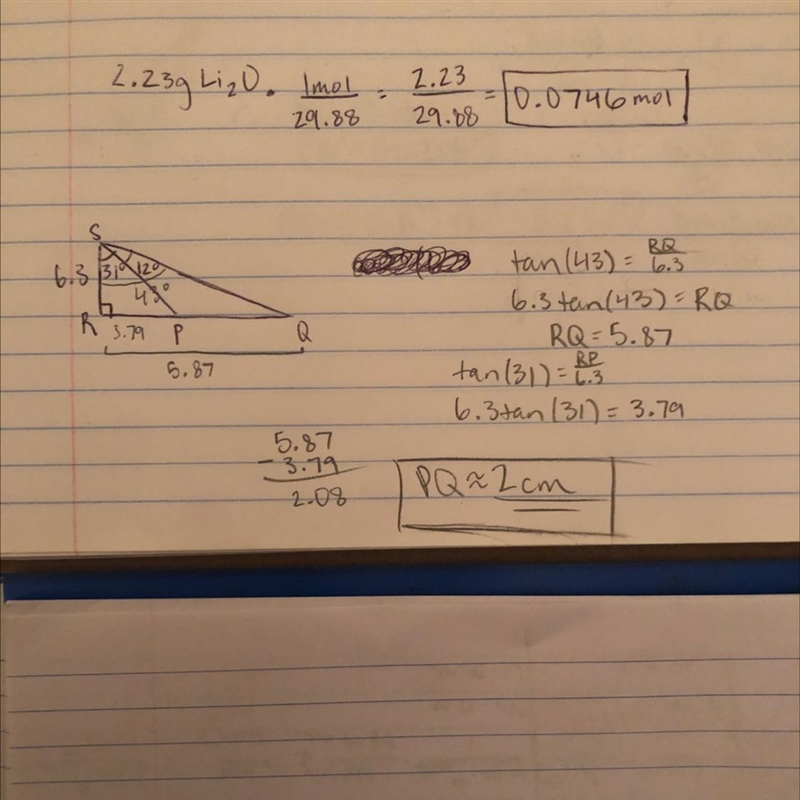 2.23g Li₂O · 1mol/29.88 = 2.23/29.88 = 0.0746 mol
S
6.3 31° 12°
43°
R 3.79 P Q
5.87
tan(43) = RQ/6.3
6.3 tan(43) = RQ
RQ = 5.87
tan(31) = RP/6.3
6.3 tan(31) = 3.79
5.87
- 3.79
2.08
PQ ≈ 2 cm